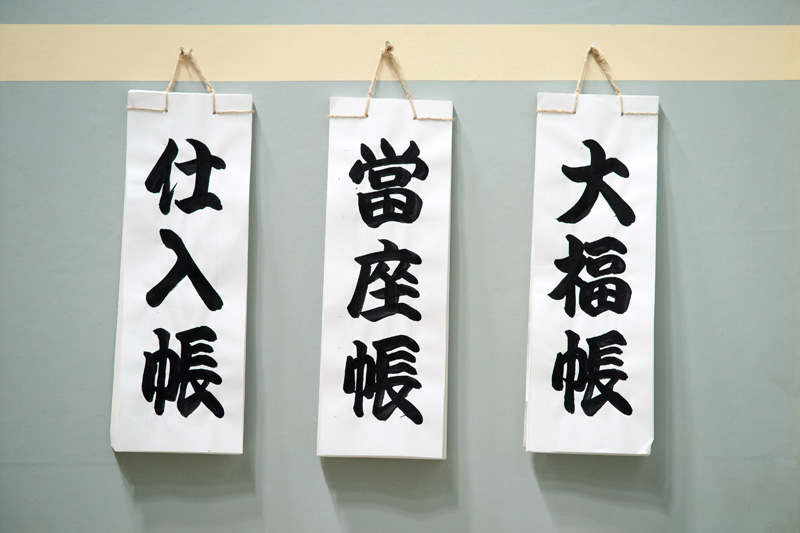 大福帳
當座帳
仕入帳